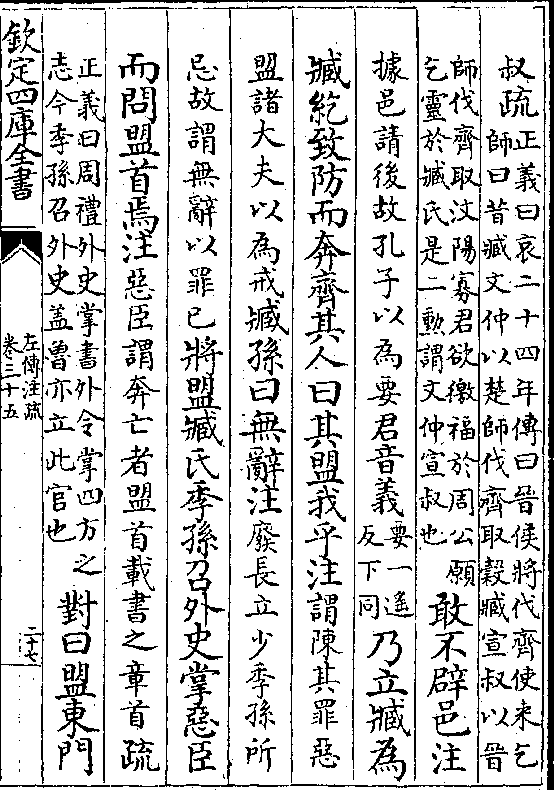 叔疏正義曰哀二十四年傳曰晉侯將伐齊使來乞
師曰昔臧文仲以楚師伐齊取穀臧宣叔以晉
師伐齊取汶陽寡君欲徼福於周公願
乞靈於臧氏是二勲謂文仲宣叔也
敢不辟邑注
據邑請後故孔子以為要君音義要一遥
反下同
乃立臧為
臧紇致防而奔齊其人曰其盟我乎注謂陳其罪惡
盟諸大夫以為戒臧孫曰無辭注廢長立少季孫所
忌故謂無辭以罪已將盟臧氏季孫召外史掌惡臣
而問盟首焉注惡臣謂奔亡者盟首載書之章首疏
正義曰周禮外史掌書外令掌四方之
志今季孫召外史盖魯亦立此官也
對曰盟東門
欽定四庫全書
左傳注疏
卷三十五
二十七